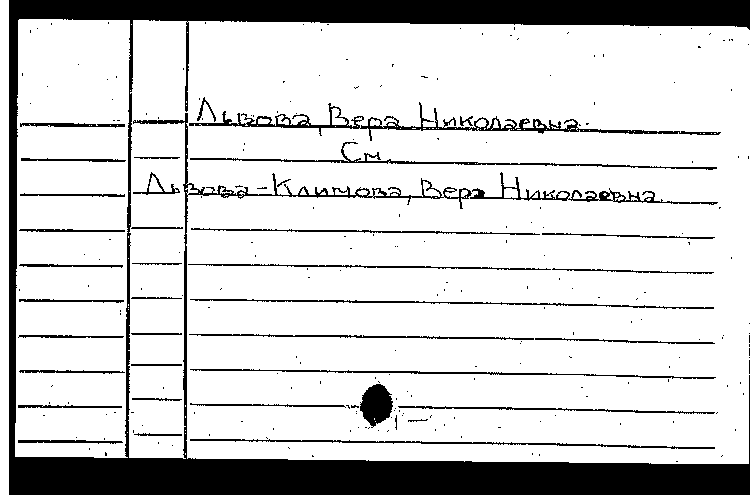 Львова, Вера Николаевна.
См.
Львова-Климова, Вера Николаевна.